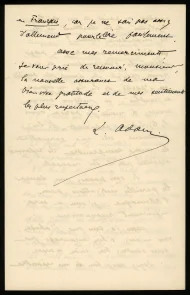 en Français, car je ne sais pas assez
l'allemand pour                   parlement.
avec mes remerciements
je vous prie de recevoir, monsieur,
la nouvelle assurance de ma
bien vive gratitude et de mes sentiments
les plus respectueux
L. Adam